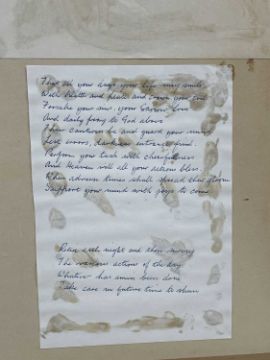 Thro' all your days your life may smile
With health and peace and crown your
Forsake your sins, your Saviour love
And daily pray to God above
Then cautious be and guard your mind
Lest errors, darkness entrance find.
Perform your task with chearfulness
And Heaven will all your actions bless.
When adverse times shall spread their
Support your mind with joys to come
each night and
The various actions of the day
Whatever has amiss been done
Take care in future time to shun